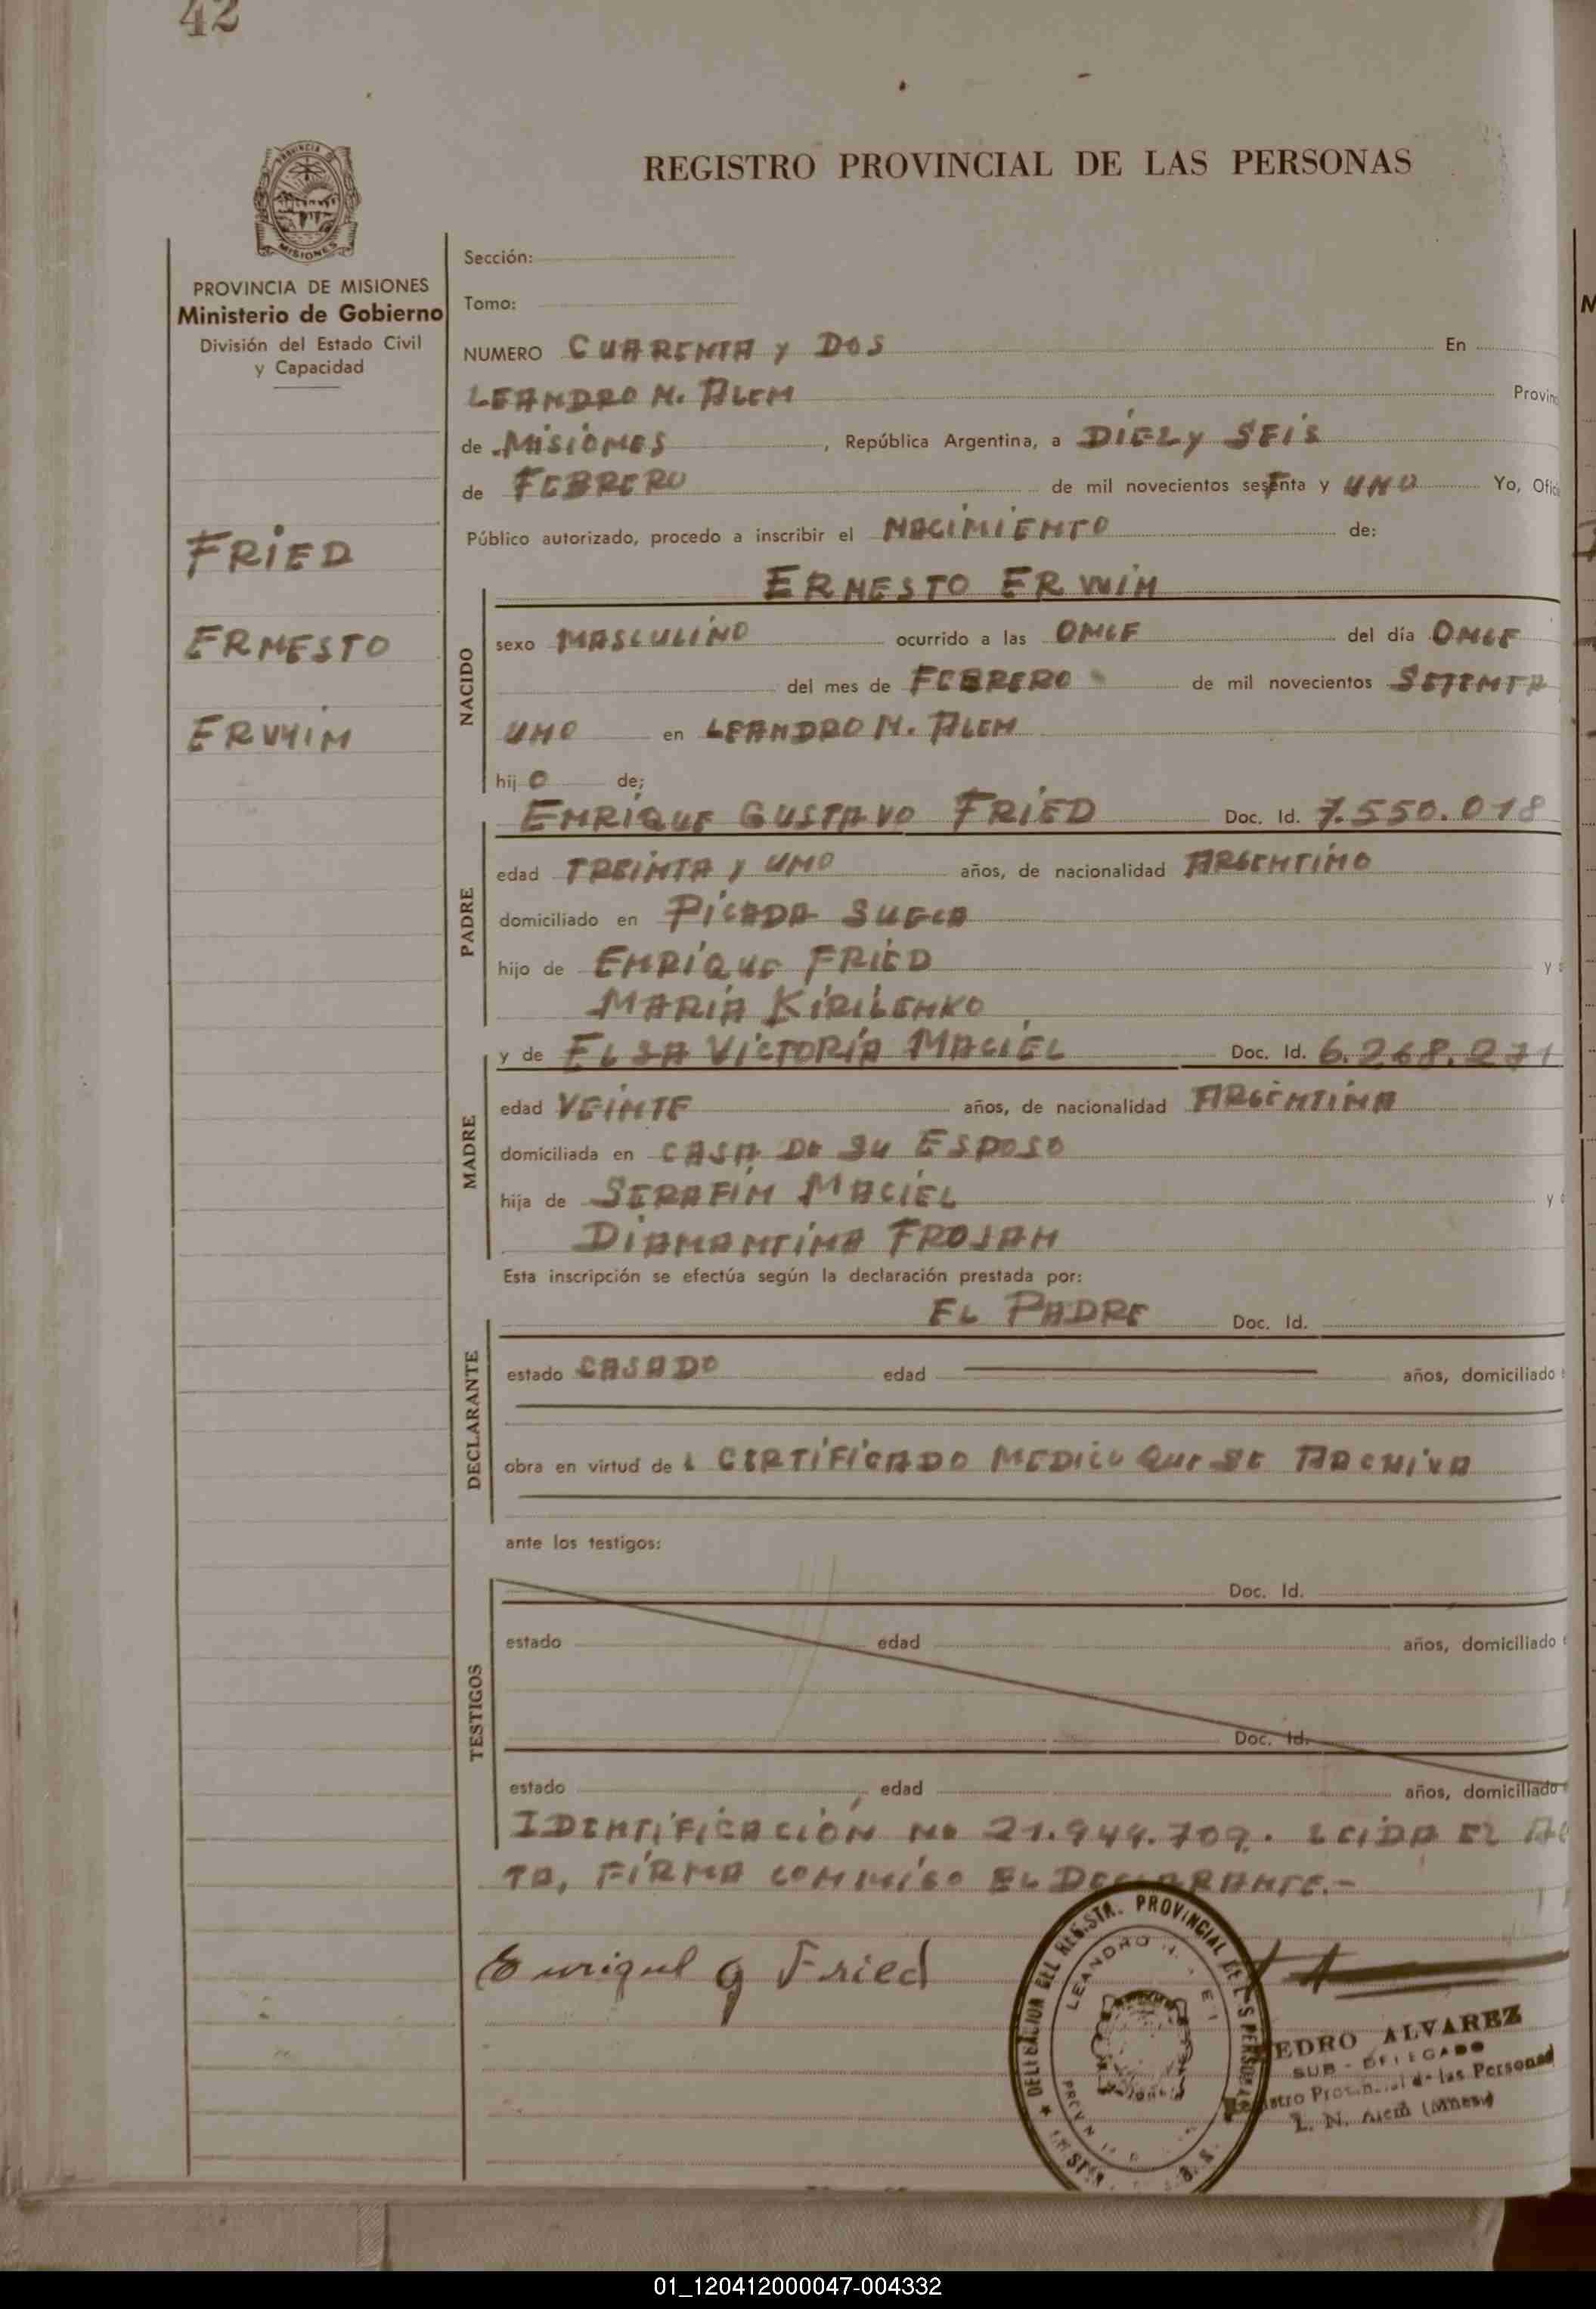 42
REGISTRO PROVINCIAL DE LAS PERSONAS
PROVINCIA DE MISIONES
Ministerio de Gobierno
División del Estado Civil
y Capacidad
FRIED
ERNESTO
ERWIN
Sección:
Tomo:
NUMERO CUARENTA y DOS En
LEANDRO N. ALEM Provinc
de MISIONES, República Argentina, a DIEZ y SEIS
de FEBRERO de mil novecientos setenta y UNO Yo, Ofic
Público autorizado, procedo a inscribir el NACIMIENTO de:
NACIDO
ERNESTO ERWIN
sexo MASCULINO ocurrido a las ONCE del día ONCE
del mes de FEBRERO de mil novecientos SETENTA
UNO en LEANDRO N. ALEM
hij O de;
PADRE
ENRIQUE GUSTAVO FRIED Doc. Id. 7.550.018
edad TREINTA y UNO años, de nacionalidad ARGENTINO
domiciliado en PICADA SUECA
hijo de ENRIQUE FRIED y
MARIA KIRILENKO
MADRE
y de ELSA VICTORIA MACIEL Doc. Id. 6.268.271
edad VEINTE años, de nacionalidad ARGENTINA
domiciliada en CASA DE SU ESPOSO
hija de SERAFIN MACIEL y
DIAMANTINA FROJAN
Esta inscripción se efectúa según la declaración prestada por:
DECLARANTE
EL PADRE Doc. Id.
estado CASADO edad años, domiciliado
obra en virtud de L CERTIFICADO MEDICO QUE SE ARCHIVA
ante los testigos:
TESTIGOS
Doc. Id.
estado edad años, domiciliado
Doc. Id.
estado edad años, domiciliado
IDENTIFICACIÓN No 21.944.709. LEIDA EL AC
TA, FIRMA CONMIGO EL DECLARANTE.-
Enrique g Fried
DELEGACION DEL REGISTR. PROVINCIAL DE L S PERSONAS
LEANDRO N.
PEDRO ALVAREZ
SUB-DELEGADO
Registro Provincial de las Personas
L. N. Alem (Mnes)
01_120412000047-004332